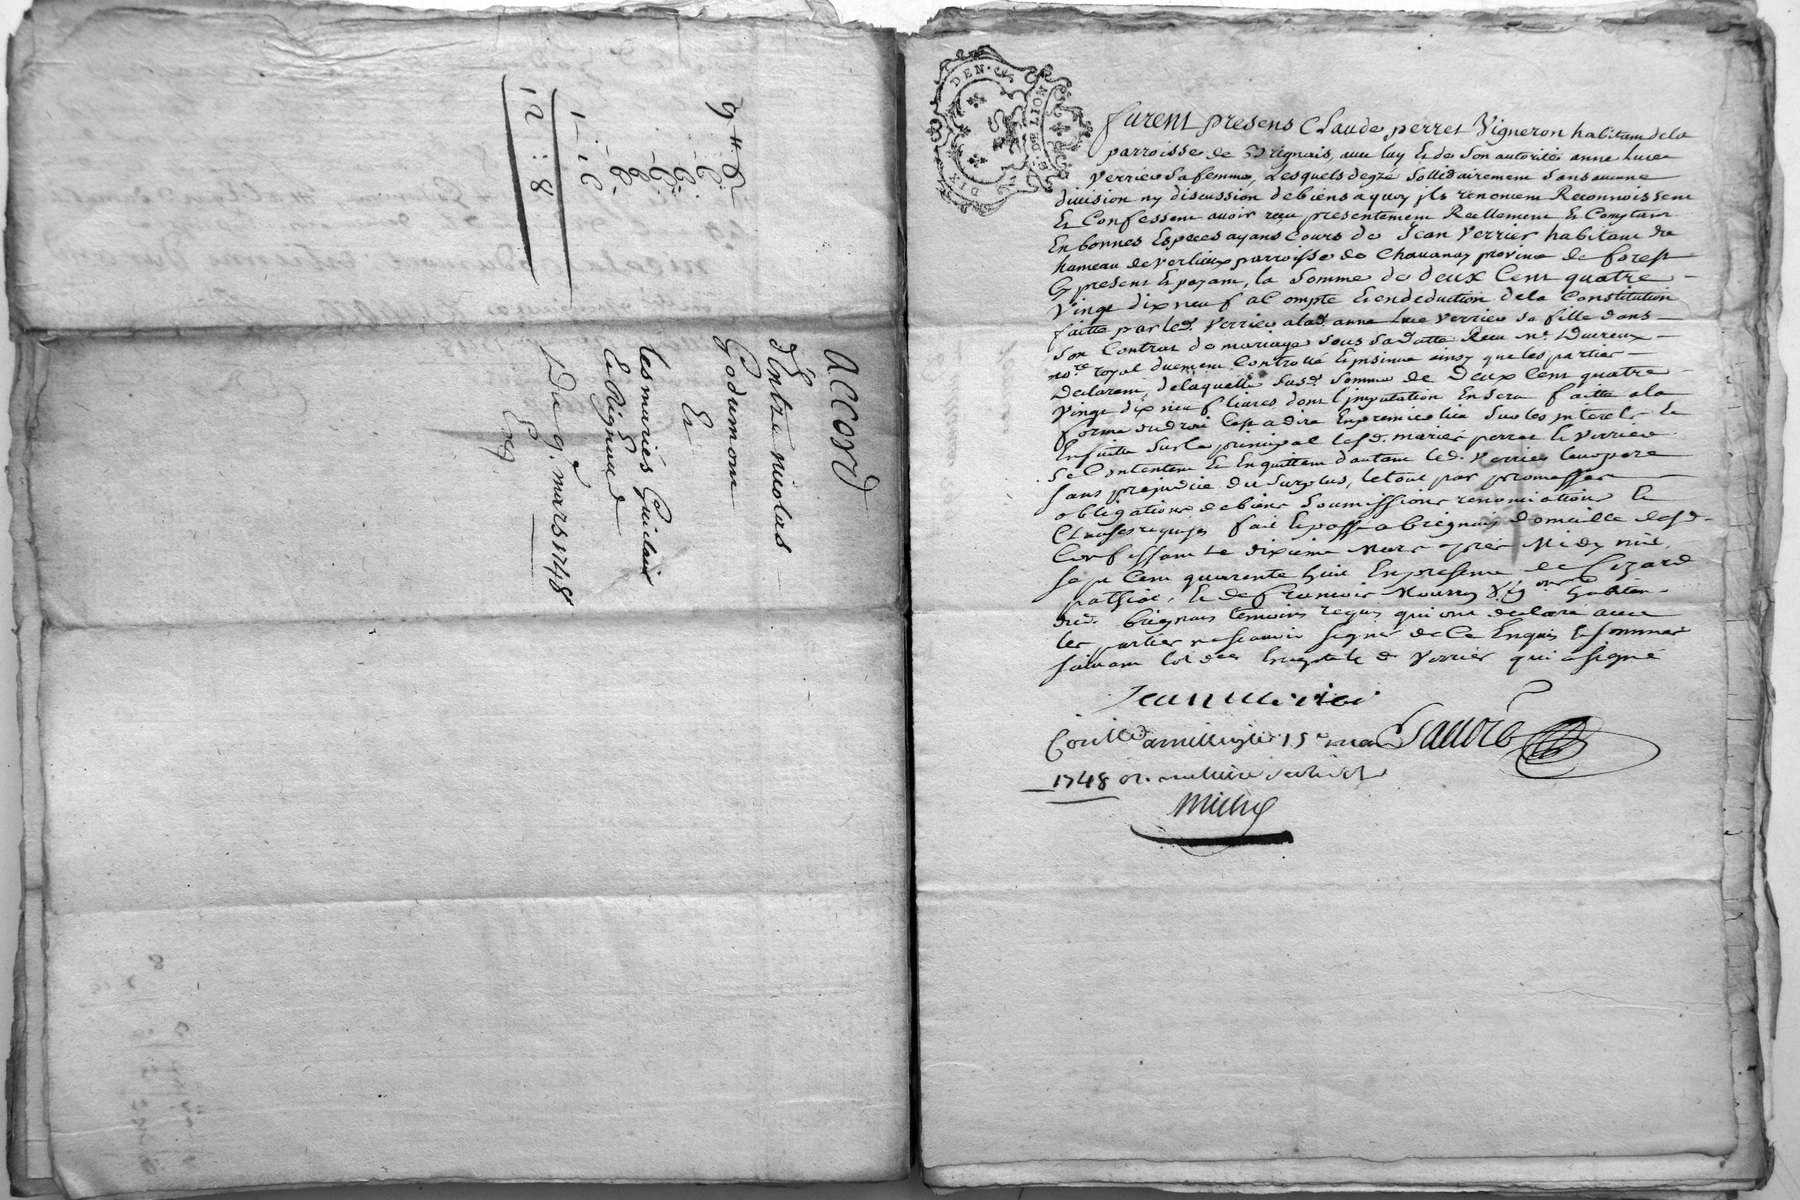 accord
d'Entre nicolas
Godumont
Et
les mariés Guiclair
et Rignaud
Du 9e mars 1748
12 : 8
DIX DEN.
G. DE LION
furent presens Claude perret Vigneron habitant de la
parroisse de Brignais, avec luy et de son autorité anne Luce
Verrier sa femme, Lesquels de gré sollidairement sans aucune
division ny discussion de biens a quoy ils renoncent Reconnoissent
Et Confessent avoir reçu presentement Reellement et Comptant
En bonnes Especes ayans Cours de Jean Verrier habitant du
hameau de verlieux parroisse de Chavanay province de forest
Cy present et payant, la somme de deux Cent quatre
Vingt dix neuf a Compte et en deduction de la Constitution
faitte par led. Verrier a lad. anne Luce Verrier sa fille dans
son Contrat de mariage sous sa datte Reçu Me. Dureux
nore. royal duement Controllé et insinué ainsy que les parties
Declarent, de laquelle susd. somme de Deux Cent quatre
Vingt dix neuf livres dont l'imputation En sera faitte a la
forme du droit C'est a dire En premier lieu sur les interets et
Ensuitte sur le principal lesd. mariés perret et Verrier
se Contentent et En quittent d'autant led. Verrier leur pere
sans prejudice du surplus, le tout par promesses
obligations de biens soumissions renonciations et
Clauses requises fait et passé a Brignais domicille desd.
Confessant le dixieme Mars apres Midy mil
sept Cent quarente huit En presence de
et de francois Vigon habitans
dud. Brignais temoins requis qui ont declaré avec
les parties ne scavoir signer de Ce Enquis et sommés
suivant l'ordce Excepté led Verrier qui a signé
Jean verrier
Conllé a millery le 15e mars
1748